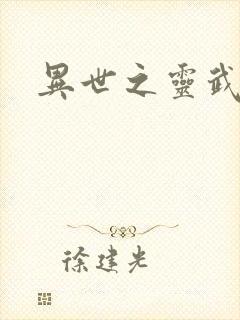 異世之靈武
徐建光